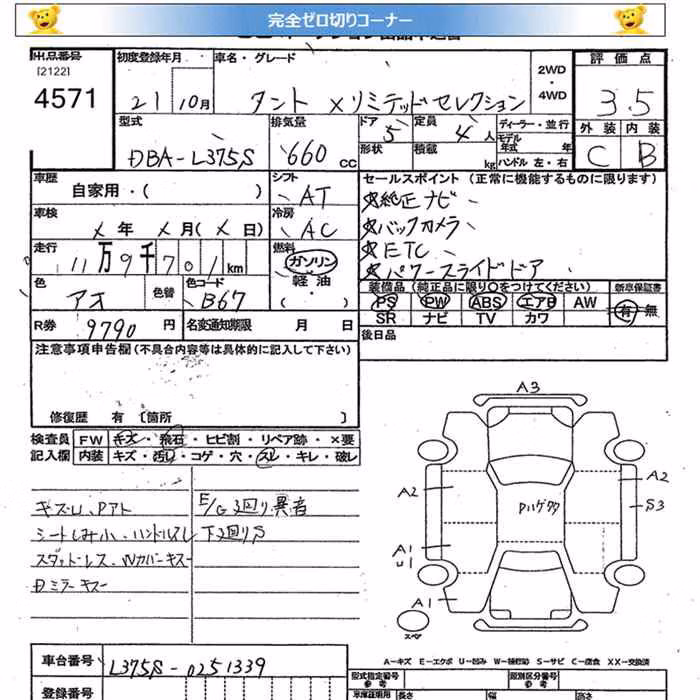 完全ゼロ切りコーナー
出品番号 初度登録年月 車名・グレード 2WD・4WD 評価点
[2122]
4571 21 10月 タント Xリミテッドセレクション 3.5
型式 排気量 ドア 定員 ディーラー・並行 外装 内装
DBA-L375S 660cc 5 4人 モデル年式 年 C B
形状 積載 kg ハンドル 左・右
車歴 自家用・( ) シフト AT セールスポイント (正常に機能するものに限ります)
車検 X年 X月(X日) 冷房 AC
☆純正ナビ
☆バックカメラ
☆ETC
☆パワースライドドア
走行 11万9千701km 燃料 ガソリン 軽油・( )
色 アオ 色替 色コード B67
装備品 (純正品に限り○をつけてください) 新車保証書
PS PW ABS エアB AW 有・無
SR ナビ TV カワ
R券 9790円 名変通知期限 月 日 後日品
注意事項申告欄 (不具合内容等は具体的に記入して下さい)
修復歴 有 [箇所 ]
検査員 FW キズ・飛石・ヒビ割・リペア跡・×要
記入欄 内装 キズ・汚れ・コゲ・穴・スレ・キレ・破レ
キズU、Pアト E/G廻り異音
シートしみ小、ハンドルスレ 下廻りS
Dミラーキズ
A3
A2 A2
S3
A1
U1
A1
スペア
A－キズ E－エクボ U－凹み W－補修跡 S－サビ C－腐食 XX－交換済
車台番号 L375S-0251339
型式指定番号 参考 類別区分番号 参考
登録番号 長さ 幅 高さ